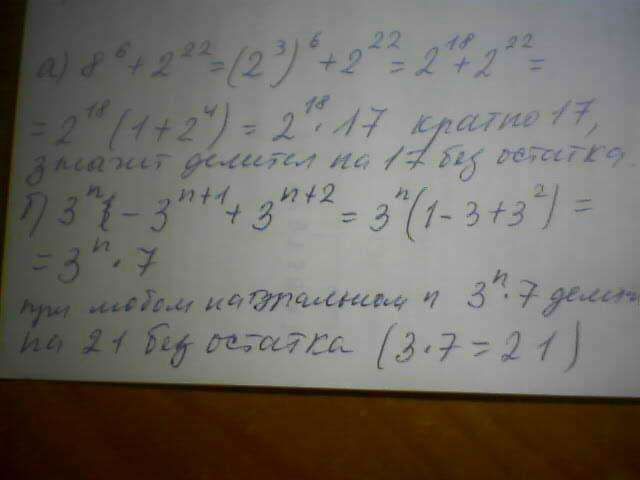 а) 8⁶ + 2²² = (2³)⁶ + 2²² = 2¹⁸ + 2²² =
= 2¹⁸ (1 + 2⁴) = 2¹⁸ · 17 кратно 17,
значит делится на 17 без остатка.
б) 3ⁿ - 3ⁿ⁺¹ + 3ⁿ⁺² = 3ⁿ (1 - 3 + 3²) =
= 3ⁿ · 7
при любом натуральном n 3ⁿ · 7 дели
на 21 без остатка (3 · 7 = 21)